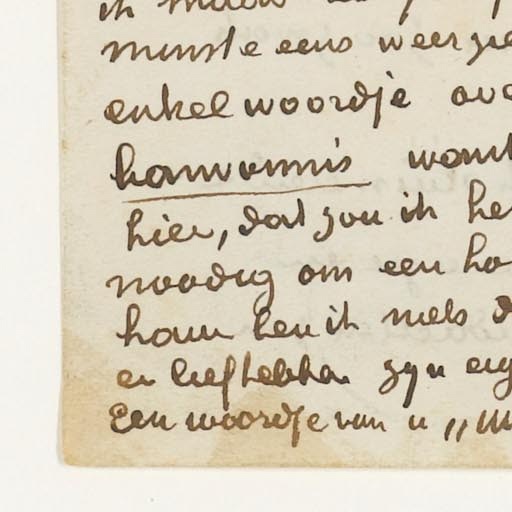 minste eens weer zie
enkel woordje ove
hanvonnis want
hier, dat zou ik he
noodig om een ho
ham ben ik niets d
er liefhebber zyn eig
Een woordje van u „M